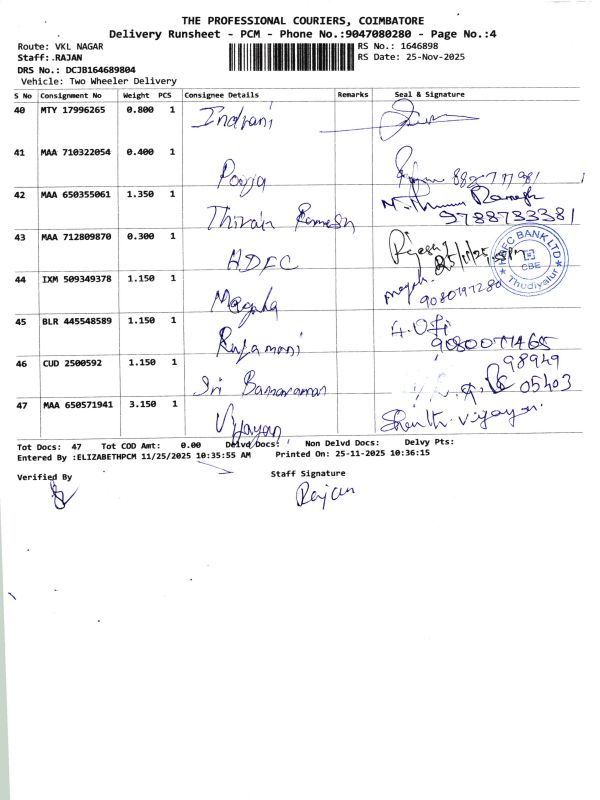 THE PROFESSIONAL COURIERS, COIMBATORE
Delivery Runsheet - PCM - Phone No.:9047080280 - Page No.:4
Route: VKL NAGAR
RS No.: 1646898
Staff: RAJAN
RS Date: 25-Nov-2025
DRS No.: DCJB164689804
Vehicle: Two Wheeler Delivery
S No Consignment No Weight PCS Consignee Details Remarks Seal & Signature
40 MTY 17996265 0.800 1 Indrani
41 MAA 710322054 0.400 1 Pooja
42 MAA 650355061 1.350 1 Thiran Ramesh Ramesh
9788733381
43 MAA 712809870 0.300 1 HDFC HDFC BANK LTD CBE Thudiyalur
44 IXM 509349378 1.150 1 Megha
45 BLR 445548589 1.150 1 Rajamani
46 CUD 2500592 1.150 1 Sri 98949
05403
47 MAA 650571941 3.150 1 Vijayan Vijayan
Tot Docs: 47 Tot COD Amt: 0.00 Delvd Docs: Non Delvd Docs: Delvy Pts:
Entered By :ELIZABETHPCM 11/25/2025 10:35:55 AM Printed On: 25-11-2025 10:36:15
Verified By
Staff Signature
Rajan